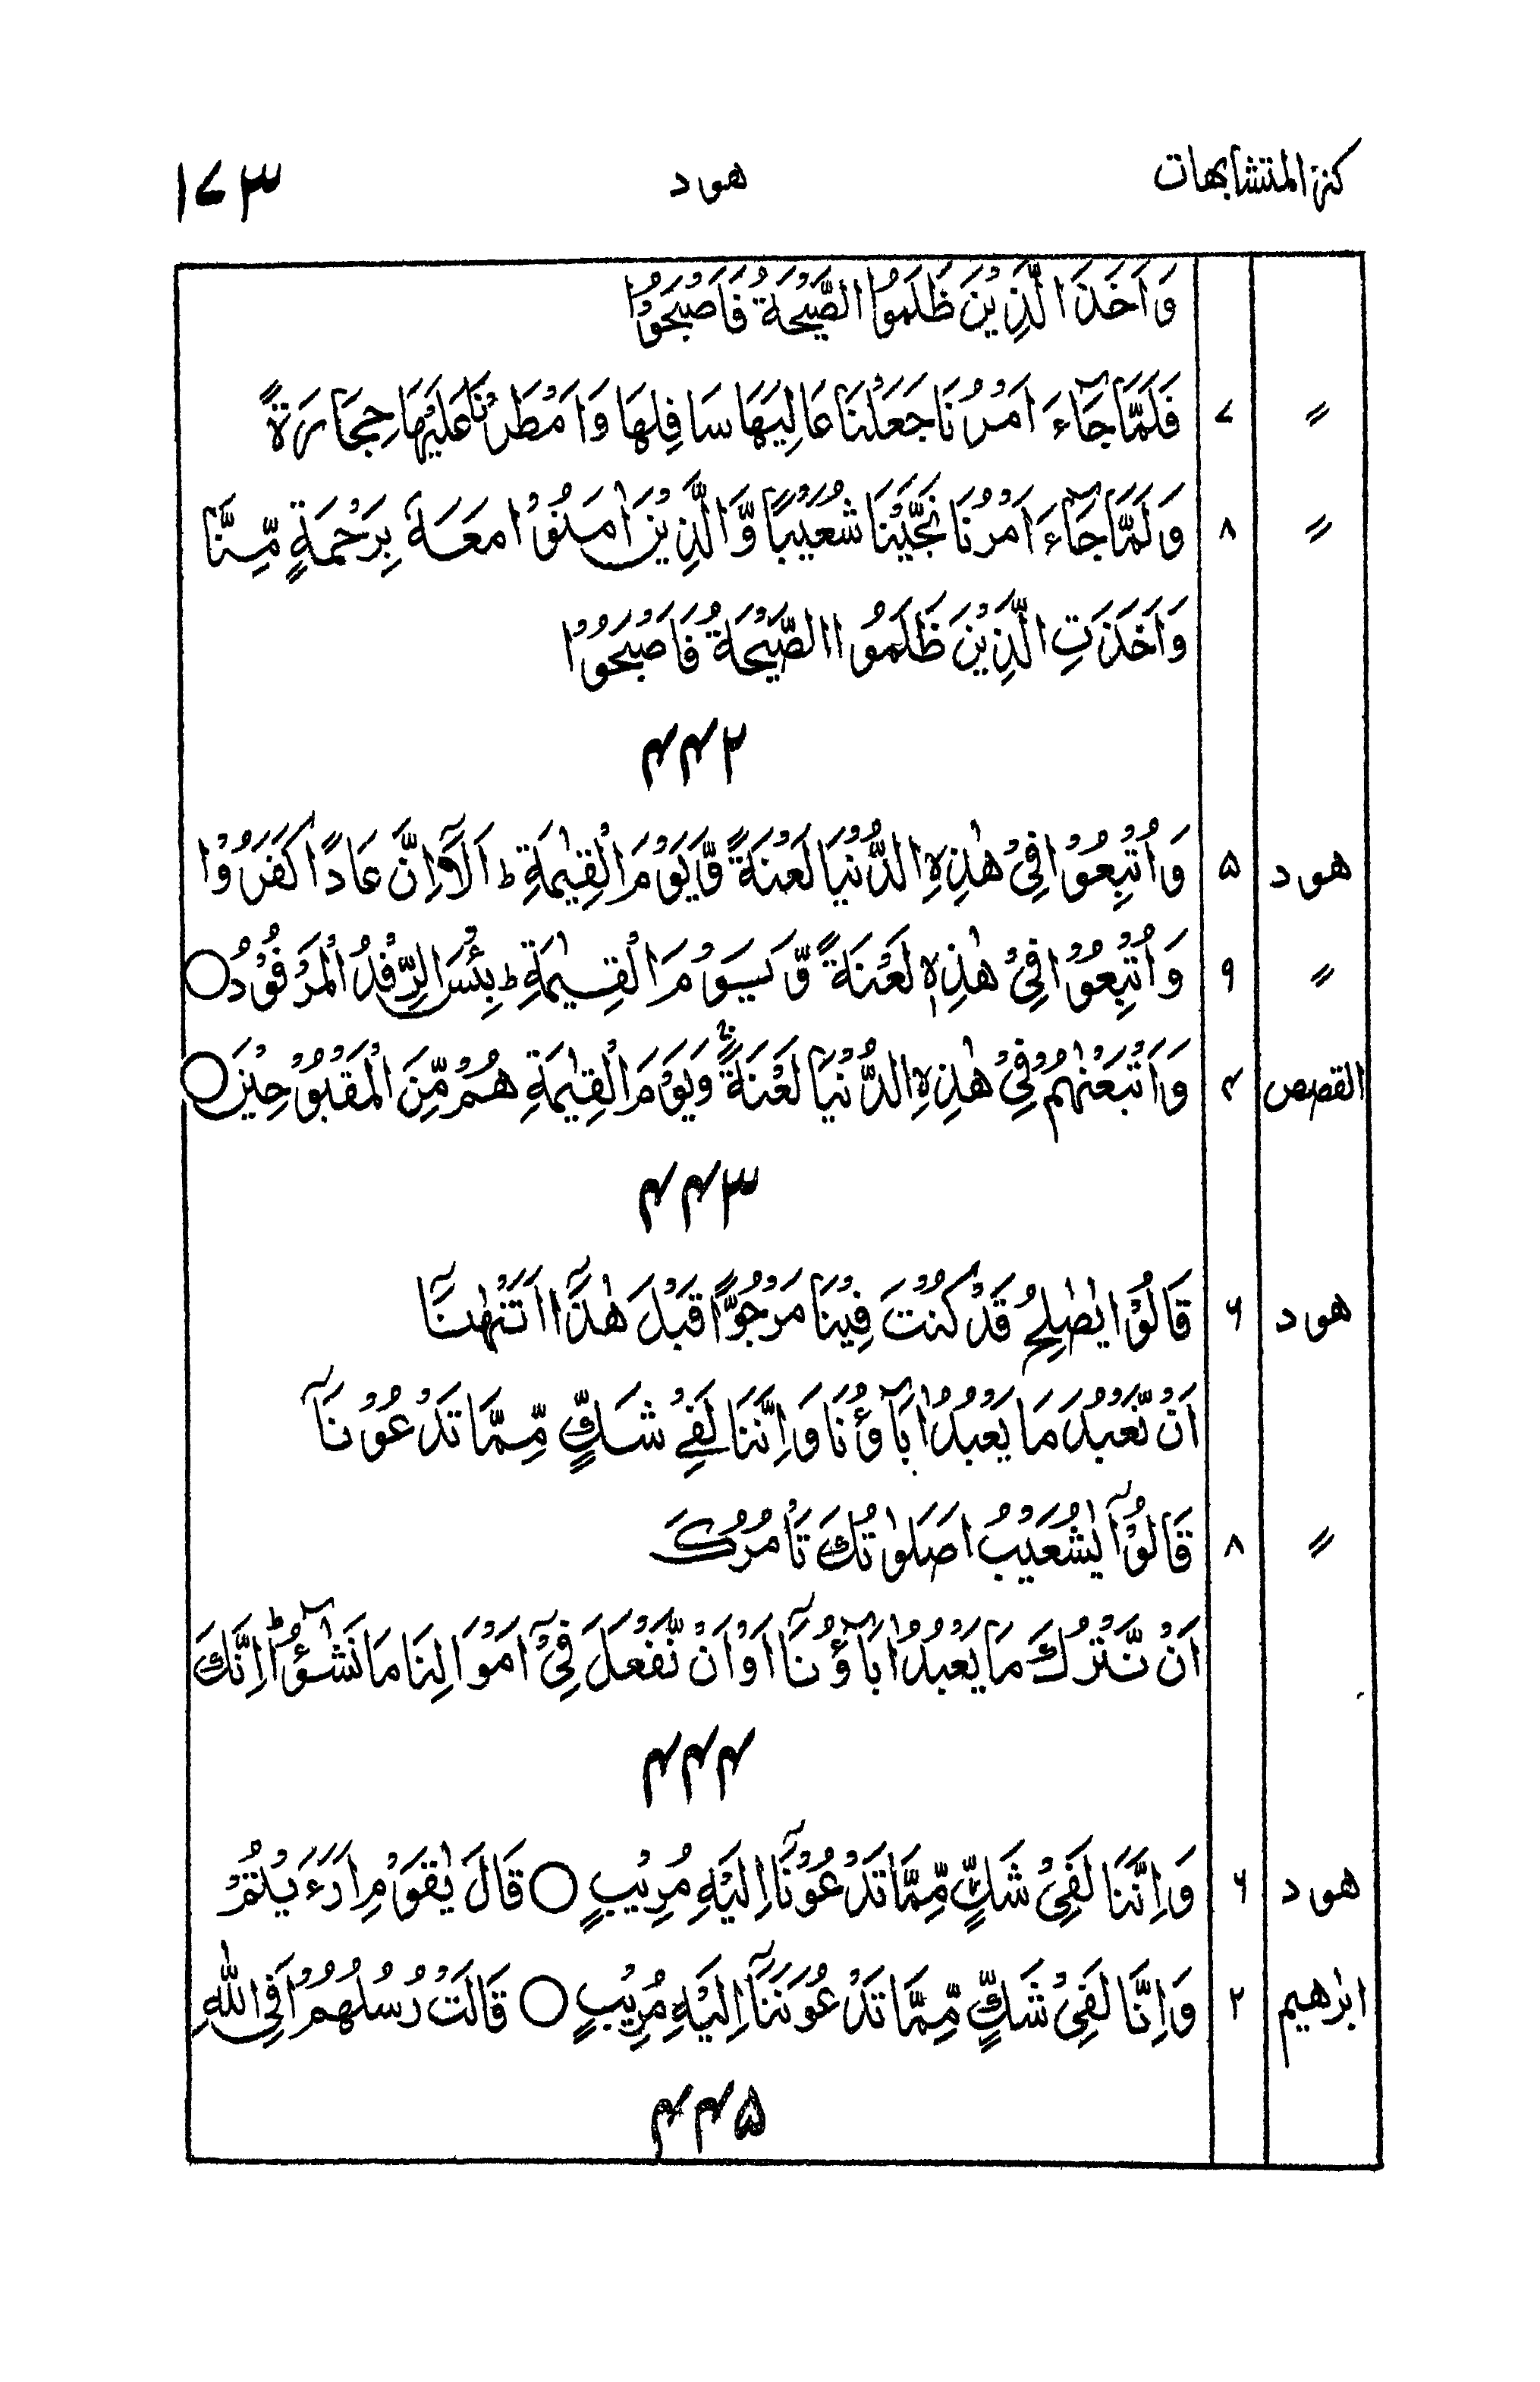 كنز المتشابهات هود ۱۷۳
وَاَخَذَ الَّذِيْنَ ظَلَمُوا الصَّيْحَةُ فَاَصْبَحُوْا
〃 ۷ فَلَمَّا جَآءَ اَمْرُنَا جَعَلْنَا عَالِيَهَا سَافِلَهَا وَاَمْطَرْنَا عَلَيْهَا حِجَارَةً
〃 ۸ وَلَمَّا جَآءَ اَمْرُنَا نَجَّيْنَا شُعَيْبًا وَّالَّذِيْنَ اٰمَنُوْا مَعَهٗ بِرَحْمَةٍ مِّنَّا
وَاَخَذَتِ الَّذِيْنَ ظَلَمُوا الصَّيْحَةُ فَاَصْبَحُوْا
۴۴۲
هود ۵ وَاُتْبِعُوْا فِیْ هٰذِهِ الدُّنْيَا لَعْنَةً وَّيَوْمَ الْقِيٰمَةِ ؕ اَلَآ اِنَّ عَادًا كَفَرُوْا
〃 ۹ وَاُتْبِعُوْا فِیْ هٰذِهٖ لَعْنَةً وَّيَوْمَ الْقِيٰمَةِ ؕ بِئْسَ الرِّفْدُ الْمَرْفُوْدُ ○
القصص ۴ وَاَتْبَعْنٰهُمْ فِیْ هٰذِهِ الدُّنْيَا لَعْنَةً ۚ وَيَوْمَ الْقِيٰمَةِ هُمْ مِّنَ الْمَقْبُوْحِيْنَ ○
۴۴۳
هود ۶ قَالُوْا يٰصٰلِحُ قَدْ كُنْتَ فِيْنَا مَرْجُوًّا قَبْلَ هٰذَآ اَتَنْهٰىنَآ
اَنْ نَّعْبُدَ مَا يَعْبُدُ اٰبَآؤُنَا وَاِنَّنَا لَفِیْ شَكٍّ مِّمَّا تَدْعُوْنَآ
〃 ۸ قَالُوْا يٰشُعَيْبُ اَصَلٰوتُكَ تَاْمُرُكَ
اَنْ نَّتْرُكَ مَا يَعْبُدُ اٰبَآؤُنَآ اَوْ اَنْ نَّفْعَلَ فِیْٓ اَمْوَالِنَا مَا نَشٰٓؤُا ؕ اِنَّكَ
۴۴۴
هود ۶ وَاِنَّنَا لَفِیْ شَكٍّ مِّمَّا تَدْعُوْنَآ اِلَيْهِ مُرِيْبٍ ○ قَالَ يٰقَوْمِ اَرَءَيْتُمْ
ابرٰهيم ۲ وَاِنَّا لَفِیْ شَكٍّ مِّمَّا تَدْعُوْنَنَآ اِلَيْهِ مُرِيْبٍ ○ قَالَتْ رُسُلُهُمْ اَفِی اللّٰهِ
۴۴۵